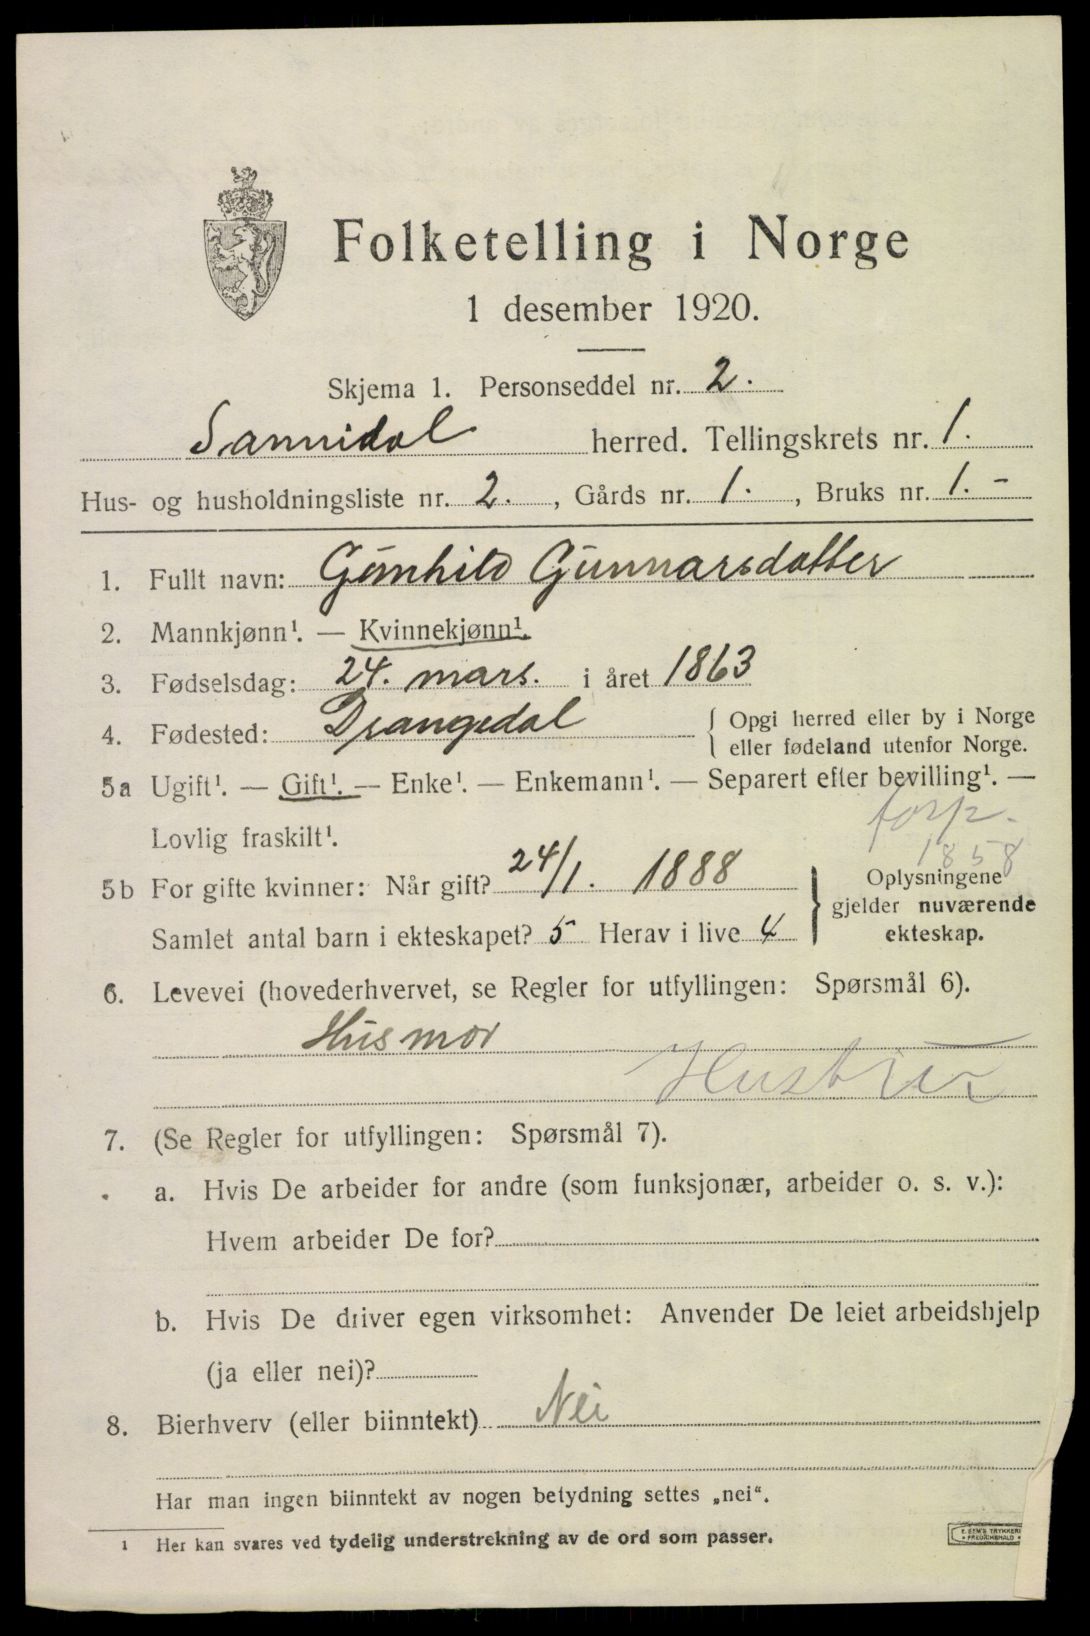 Folketelling i Norge
1 desember 1920.
Skjema 1. Personseddel nr. 2.
Sannidal herred. Tellingskrets nr. 1.
Hus- og husholdningsliste nr. 2. , Gårds nr. 1. , Bruks nr. 1. -
1. Fullt navn: Gunhild Gunnarsdatter
2. Mannkjønn¹. — Kvinnekjønn¹.
3. Fødselsdag: 24. mars. i året 1863
4. Fødested: Drangedal { Opgi herred eller by i Norge
eller fødeland utenfor Norge.
5a Ugift¹. — Gift¹. — Enke¹. — Enkemann¹. — Separert efter bevilling¹. —
Lovlig fraskilt¹.
1858
5b For gifte kvinner: Når gift? 24/1. 1888
Samlet antal barn i ekteskapet? 5 Herav i live 4
} Oplysningene
gjelder nuværende
ekteskap.
6. Levevei (hovederhvervet, se Regler for utfyllingen: Spørsmål 6).
Husmor
Hustru
7. (Se Regler for utfyllingen: Spørsmål 7).
a. Hvis De arbeider for andre (som funksjonær, arbeider o. s. v.):
Hvem arbeider De for?
b. Hvis De driver egen virksomhet: Anvender De leiet arbeidshjelp
(ja eller nei)?
8. Bierhverv (eller biinntekt) Nei
Har man ingen biinntekt av nogen betydning settes „nei“.
¹ Her kan svares ved tydelig understrekning av de ord som passer.
E. SEM'S TRYKKERI
FREDRIKSHALD